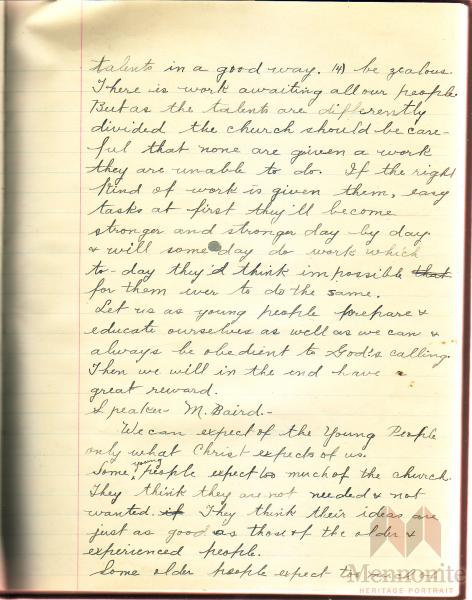 talents in a good way. 14) be zealous.
There is work awaiting all our people.
But as the talents are differently
divided the church should be care-
ful that none are given a work
they are unable to do. If the right
kind of work is given them, easy
tasks at first they'll become
stronger and stronger day-by day
& will some day do work which
to-day they'd think impossible that
for them ever to do the same.
Let us as young people prepare &
educate ourselves as well as we can &
always be obedient to God's calling.
Then we will in the end have a
great reward.
Speaker- M. Baird.-
We can expect of the Young People
only what Christ expects of us.
Some young people expect too much of the church.
They think they are not needed & not
wanted if They think their ideas are
just as good as those of the older &
experienced people.
Some older people expect too much
Mennonite
HERITAGE PORTRAIT